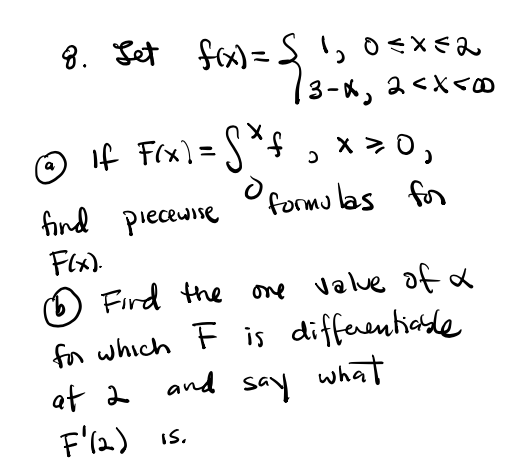 8. Let f(x) = { 1, 0 ≤ x ≤ 2
3-x, 2 < x < ∞
(a) If F(x) = ∫₀ˣ f, x ≥ 0,
find piecewise formulas for
F(x).
(b) Find the one value of α
for which F is differentiable
at 2 and say what
F'(2) is.